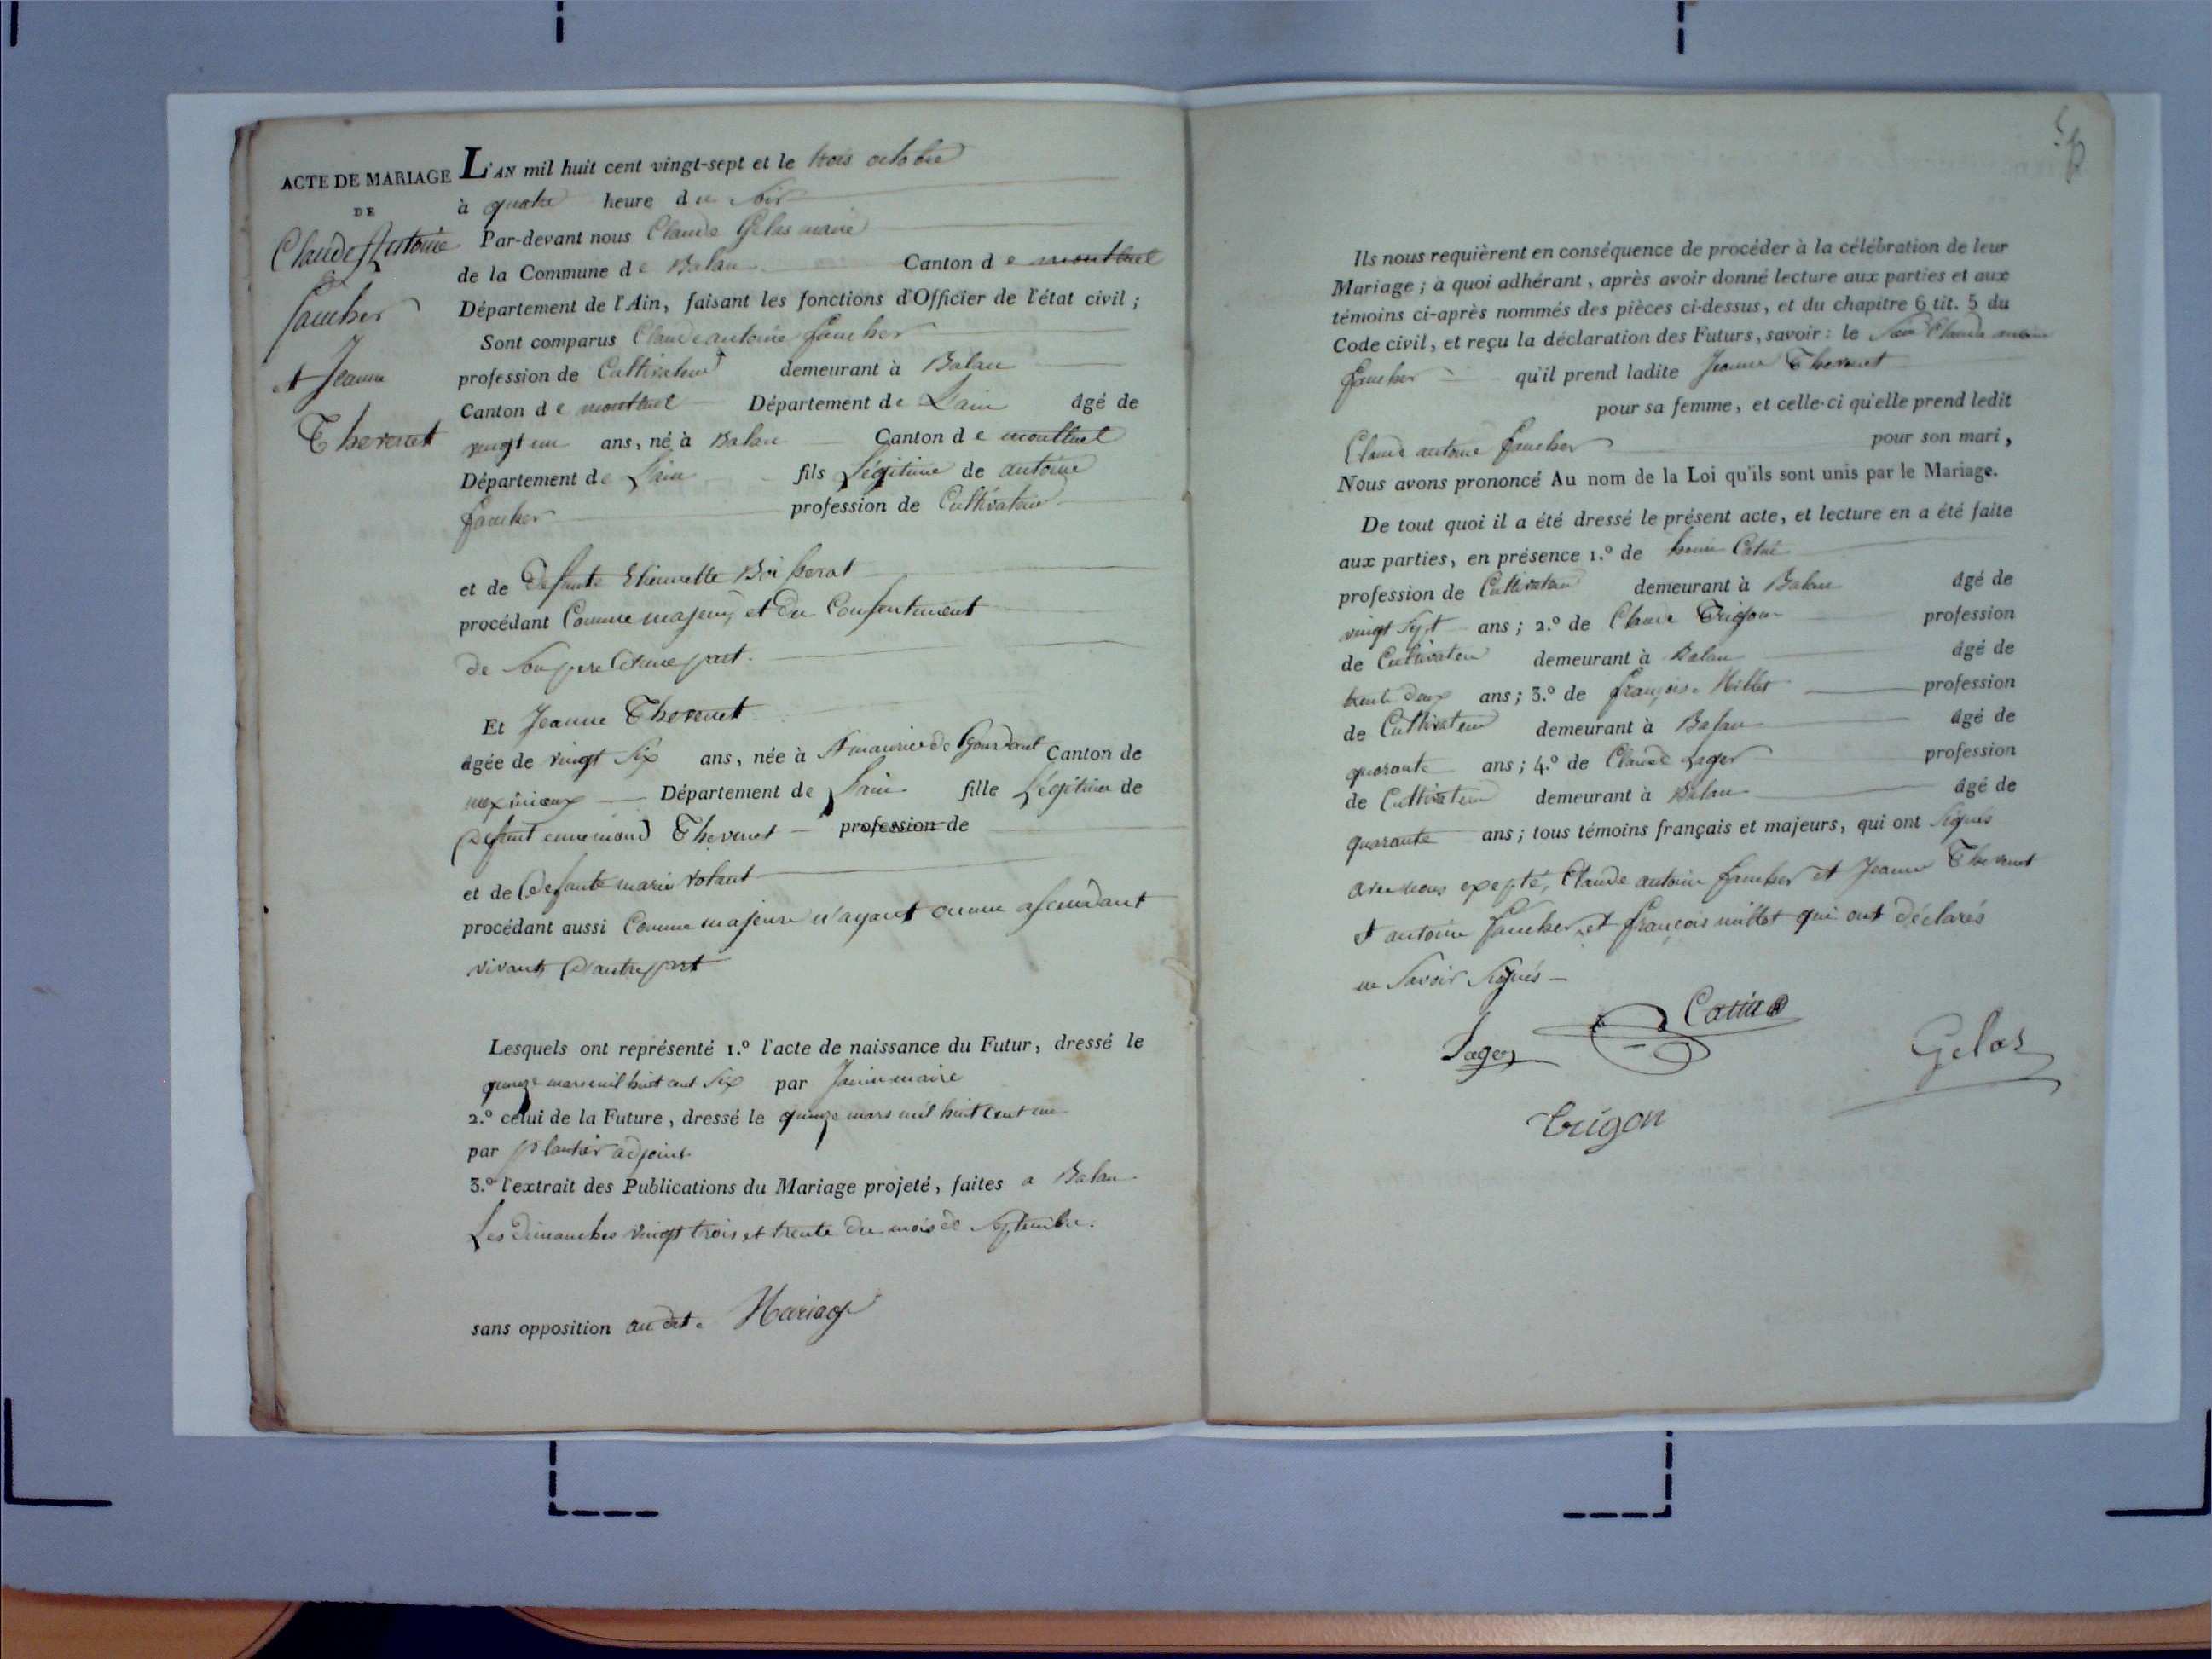 ACTE DE MARIAGE
DE
Claude Antoine
faucher
et Jeanne
Thevenet
L'AN mil huit cent vingt-sept et le trois octobre
à quatre heure du Soir
Par-devant nous Claude Gelas maire
de la Commune de Balan Canton de montluel
Département de l'Ain, faisant les fonctions d'Officier de l'état civil ;
Sont comparus Claude antoine faucher
profession de Cultivateur demeurant à Balan
Canton de montluel Département de Lain âgé de
vingt un ans, né à Balan Canton de montluel
Département de Lain fils Légitime de antoine
faucher profession de Cultivateur
et de defunte Etiennette
procédant Comme majeur, et du Consentement
de Son pere d'une part.
Et Jeanne Thevenet
âgée de vingt Six ans, née à St maurice de Gourdant Canton de
meximieux Département de Lain fille Légitime de
defunt ennemond Thevenet profession de
et de defunte marie
procédant aussi Comme majeure n'ayant aucun asendant
vivant, d'autre part
Lesquels ont représenté 1.º l'acte de naissance du Futur, dressé le
quinze mars mil huit cent Six par Janin maire
2.º celui de la Future, dressé le quinze mars mil huit cent un
par plantier adjoint
3.º l'extrait des Publications du Mariage projeté, faites a Balan
Les dimanches vingt trois et trente du mois de Septembre.
sans opposition au dit Mariage
Ils nous requièrent en conséquence de procéder à la célébration de leur
Mariage ; à quoi adhérant, après avoir donné lecture aux parties et aux
témoins ci-après nommés des pièces ci-dessus, et du chapitre 6 tit. 5 du
Code civil, et reçu la déclaration des Futurs, savoir : le Claude antoine
faucher qu'il prend ladite Jeanne Thevenet
pour sa femme, et celle-ci qu'elle prend ledit
Claude antoine faucher pour son mari,
Nous avons prononcé Au nom de la Loi qu'ils sont unis par le Mariage.
De tout quoi il a été dressé le présent acte, et lecture en a été faite
aux parties, en présence 1.º de
profession de Cultivateur demeurant à Balan âgé de
vingt Sept ans ; 2.º de Claude Trigon profession
de Cultivateur demeurant à Balan âgé de
trente deux ans ; 3.º de françois Millet profession
de Cultivateur demeurant à Balan âgé de
quarante ans ; 4.º de Claude Lager profession
de Cultivateur demeurant à Balan âgé de
quarante ans ; tous témoins français et majeurs, qui ont Signés
avec nous expepté, Claude antoine faucher et Jeanne Thevenet
et antoine faucher et françois millet qui ont déclarés
ne Savoir Signés
Lager
Gelas
trigon